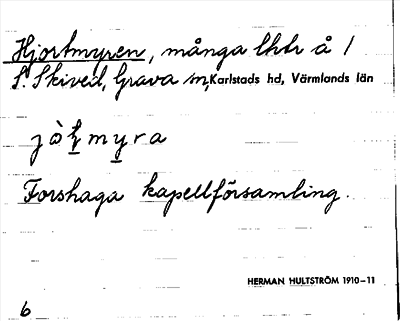 Hjortmyren, många lktr å /
S. Skived, Grava sn, Karlstads hd, Värmlands län
Forshaga kapellförsamling.
HERMAN HULTSTRÖM 1910–11
6